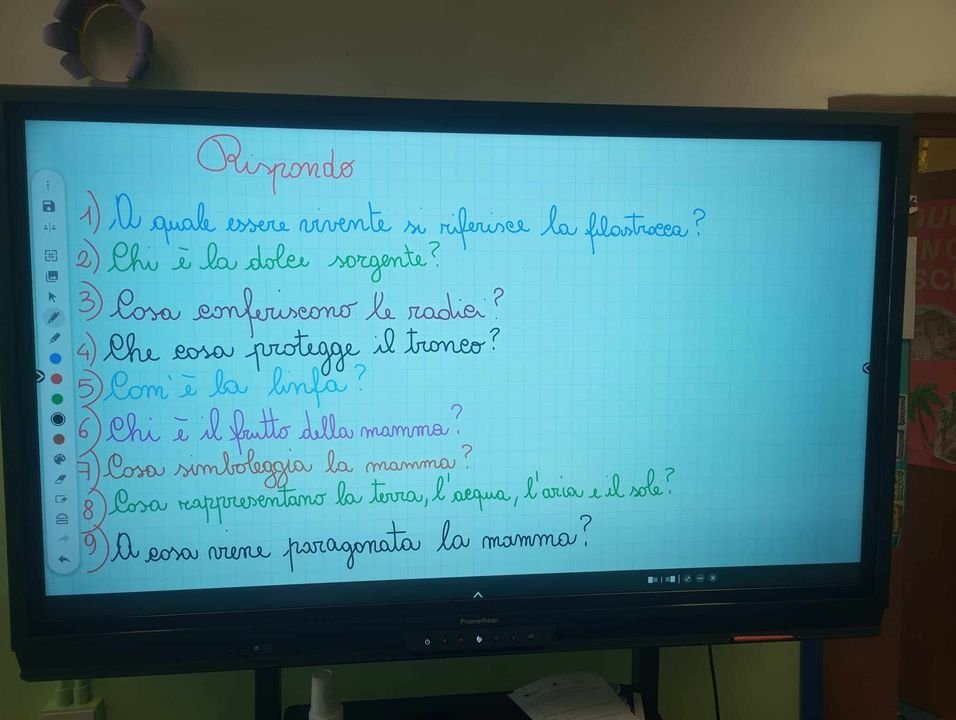 Rispondo
1) A quale essere vivente si riferisce la filastrocca?
2) Chi è la dolce sorgente?
3) Cosa conferiscono le radici?
4) Che cosa protegge il tronco?
5) Com'è la linfa?
6) Chi è il frutto della mamma?
7) Cosa simboleggia la mamma?
8) Cosa rappresentano la terra, l'acqua, l'aria e il sole?
9) A cosa viene paragonata la mamma?
Promethean